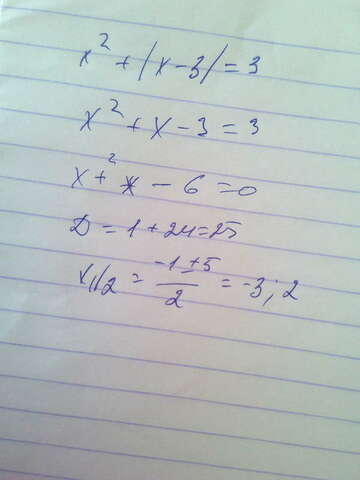 x² + |x-3| = 3
x² + x - 3 = 3
x² + x - 6 = 0
D = 1 + 24 = 25
x₁/₂ = (-1 ± 5)/2 = -3; 2